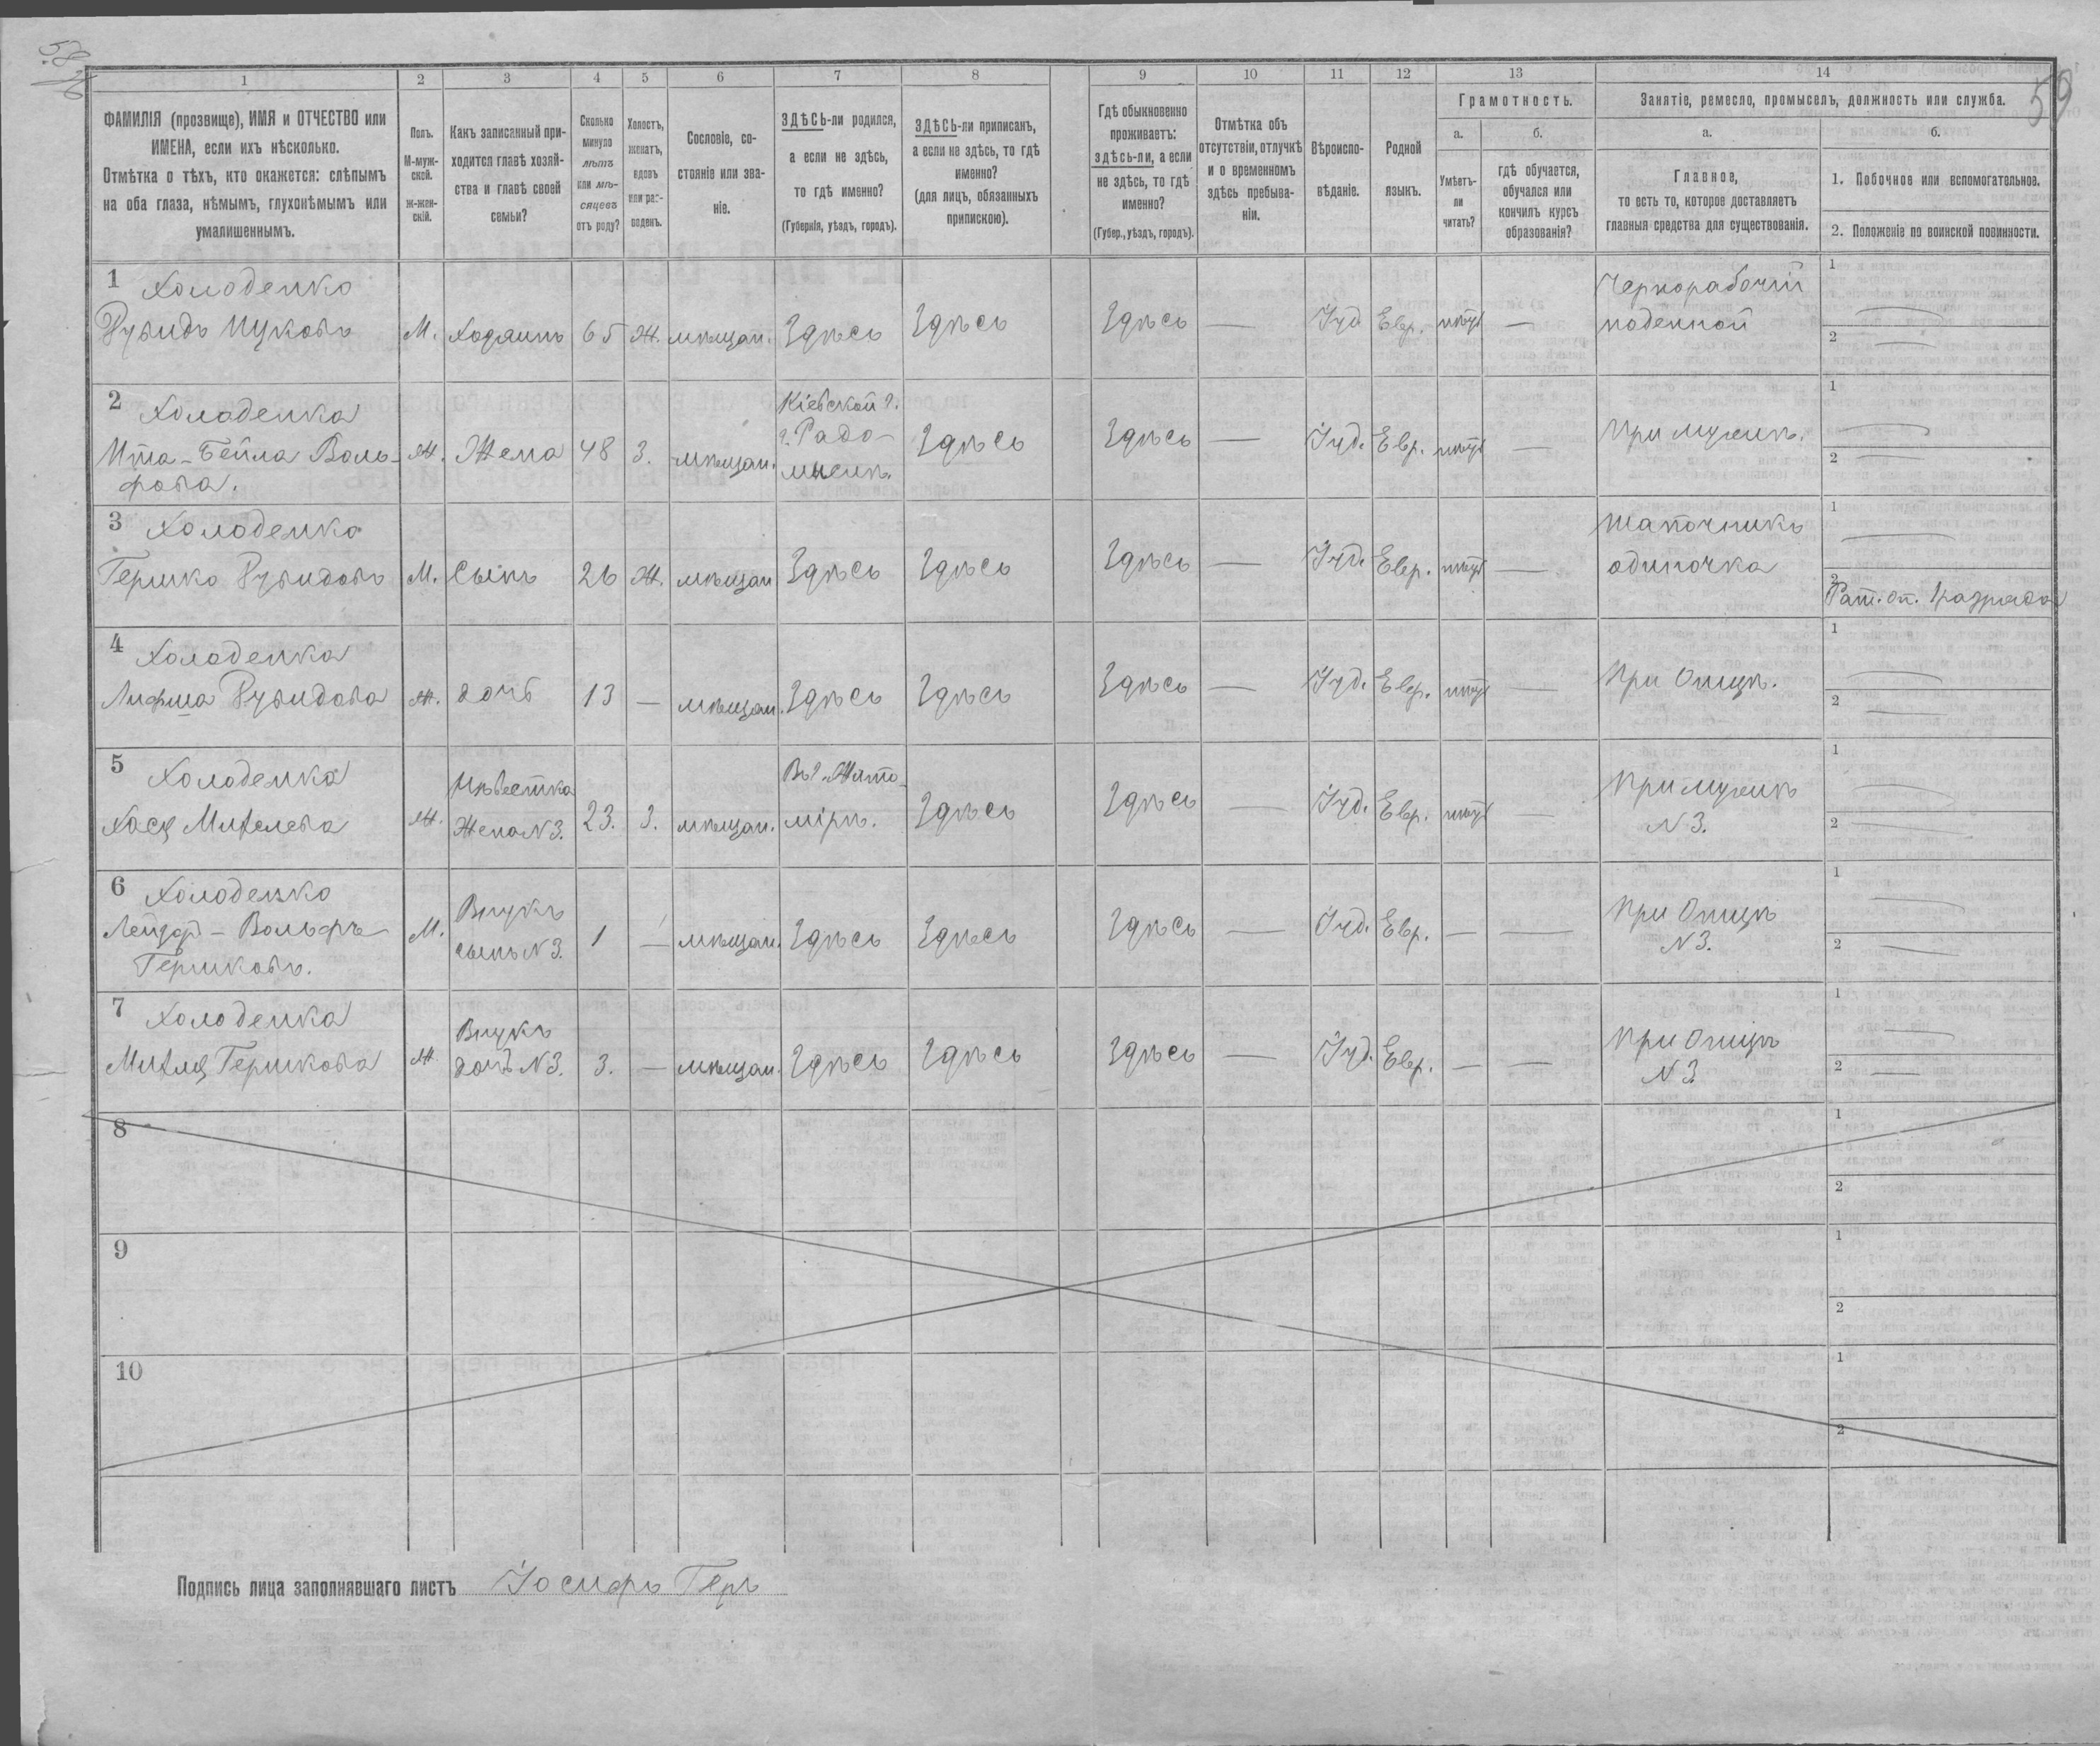 58
59
1 2 3 4 5 6 7 8 9 10 11 12 13 14
ФАМИЛІЯ (прозвище), ИМЯ и ОТЧЕСТВО или
ИМЕНА, если ихъ нѣсколько.
Отмѣтка о тѣхъ, кто окажется: слѣпымъ
на оба глаза, нѣмымъ, глухонѣмымъ или
умалишеннымъ.
Полъ.
М-муж-
ской.
Ж-жен-
скій.
Какъ записанный при-
ходится главѣ хозяй-
ства и главѣ своей
семьи?
Сколько
минуло
лѣтъ
или мѣ-
сяцевъ
отъ роду?
Холостъ,
женатъ,
вдовъ
или раз-
веденъ.
Сословіе, со-
стояніе или зва-
ніе.
ЗДѢСЬ-ли родился,
а если не здѣсь,
то гдѣ именно?
(Губернія, уѣздъ, городъ).
ЗДѢСЬ-ли приписанъ,
а если не здѣсь, то гдѣ
именно?
(для лицъ, обязанныхъ
припискою).
Гдѣ обыкновенно
проживаетъ:
здѣсь-ли, а если
не здѣсь, то гдѣ
именно?
(Губер., уѣздъ, городъ).
Отмѣтка объ
отсутствіи, отлучкѣ
и о временномъ
здѣсь пребыва-
ніи.
Вѣроиспо-
вѣданіе.
Родной
языкъ.
Грамотность.
а.
Умѣетъ-
ли
читать?
б.
гдѣ обучается,
обучался или
кончилъ курсъ
образованія?
Занятіе, ремесло, промыселъ, должность или служба.
а.
Главное,
то есть то, которое доставляетъ
главныя средства для существованія.
б.
1. Побочное или вспомогательное.
2. Положеніе по воинской повинности.
1 Холоденко
Ицковъ М. Хозяинъ 65 Ж. мѣщан. Здѣсь Здѣсь Здѣсь — Іуд. Евр. нѣтъ —
Чернорабочій
поденной
1 —
2 —
2 Холоденка
Ита-Бейла Воль-
фова.
Ж. Жена 48 З. мѣщан.
Кіевской г.
г. Радо-
мыслѣ.
Здѣсь Здѣсь — Іуд. Евр. нѣтъ — При мужѣ.
1 —
2 —
3 Холоденко
Гершко М. Сынъ 26 Ж. мѣщан Здѣсь Здѣсь Здѣсь — Іуд. Евр. нѣтъ —
Шапочникъ
одиночка
1 —
2 Рат. оп. 1 разряда
4 Холоденка
Ж. дочь 13 — мѣщан. Здѣсь Здѣсь Здѣсь — Іуд. Евр. нѣтъ — При Отцѣ.
1 —
2 —
5 Холоденка
Хася
Ж.
Невѣстка
Жена N 3.
23. З. мѣщан.
Въ г. Жито-
мірѣ.
Здѣсь Здѣсь — Іуд. Евр. нѣтъ —
При мужѣ
N 3.
1 —
2 —
6 Холоденко
Вольфъ
Гершковъ.
М.
Внукъ
сынъ N 3.
1 — мѣщан. Здѣсь Здѣсь Здѣсь — Іуд. Евр. — —
При Отцѣ
N 3.
1 —
2 —
7 Холоденка
Гершкова
Ж.
Внукъ
дочь N 3.
3. — мѣщан. Здѣсь Здѣсь Здѣсь — Іуд. Евр. — —
При Отцѣ
N 3
1 —
2 —
8
1
2
9
1
2
10
1
2
Подпись лица заполнявшаго листъ Іосифъ Геръ